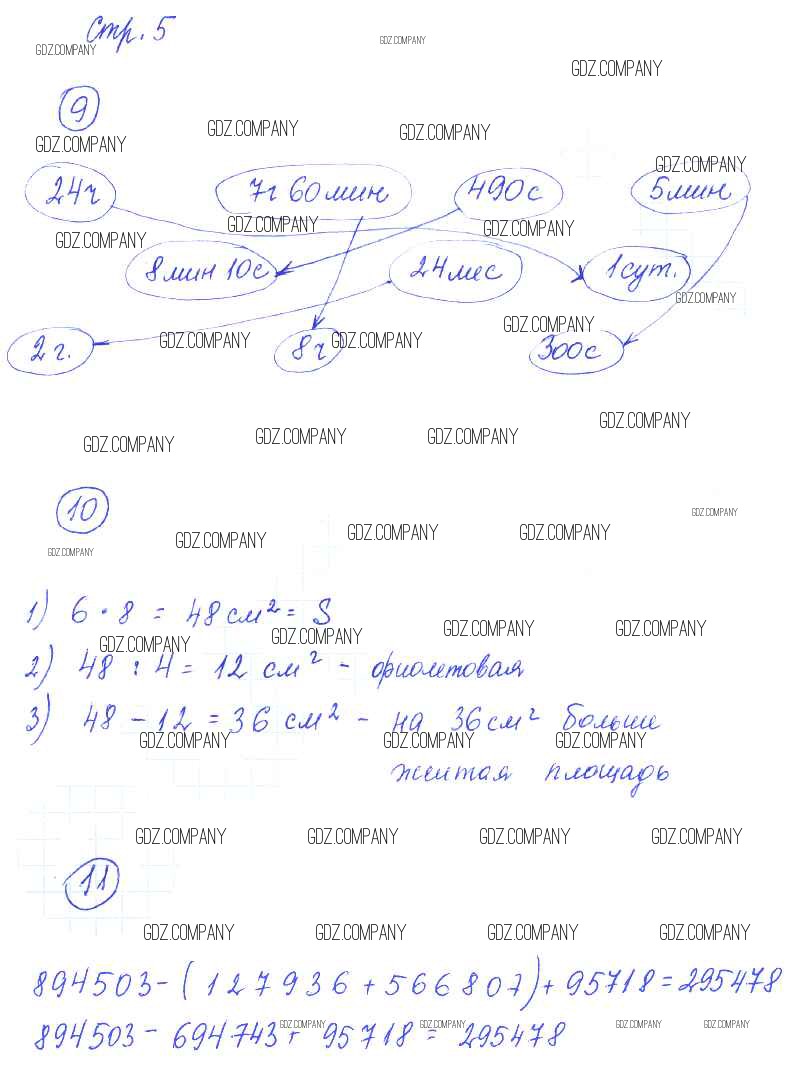 Стр. 5
GDZ.COMPANY GDZ.COMPANY GDZ.COMPANY
9
GDZ.COMPANY GDZ.COMPANY GDZ.COMPANY GDZ.COMPANY
24ч 7ч 60мин 490с 5мин
GDZ.COMPANY GDZ.COMPANY GDZ.COMPANY
8мин 10с 24мес 1сут.
GDZ.COMPANY
2г. 8ч 300с
GDZ.COMPANY GDZ.COMPANY GDZ.COMPANY
GDZ.COMPANY GDZ.COMPANY GDZ.COMPANY GDZ.COMPANY
10
GDZ.COMPANY GDZ.COMPANY GDZ.COMPANY GDZ.COMPANY GDZ.COMPANY
1) 6 · 8 = 48 см² = S
GDZ.COMPANY GDZ.COMPANY GDZ.COMPANY GDZ.COMPANY
2) 48 : 4 = 12 см² - фиолетовая
3) 48 - 12 = 36 см² - на 36 см² больше
GDZ.COMPANY GDZ.COMPANY GDZ.COMPANY
желтая площадь
GDZ.COMPANY GDZ.COMPANY GDZ.COMPANY GDZ.COMPANY
11
GDZ.COMPANY GDZ.COMPANY GDZ.COMPANY GDZ.COMPANY
894503-(127936+566807)+95718=295478
894503-694743+95718=295478
GDZ.COMPANY GDZ.COMPANY GDZ.COMPANY GDZ.COMPANY